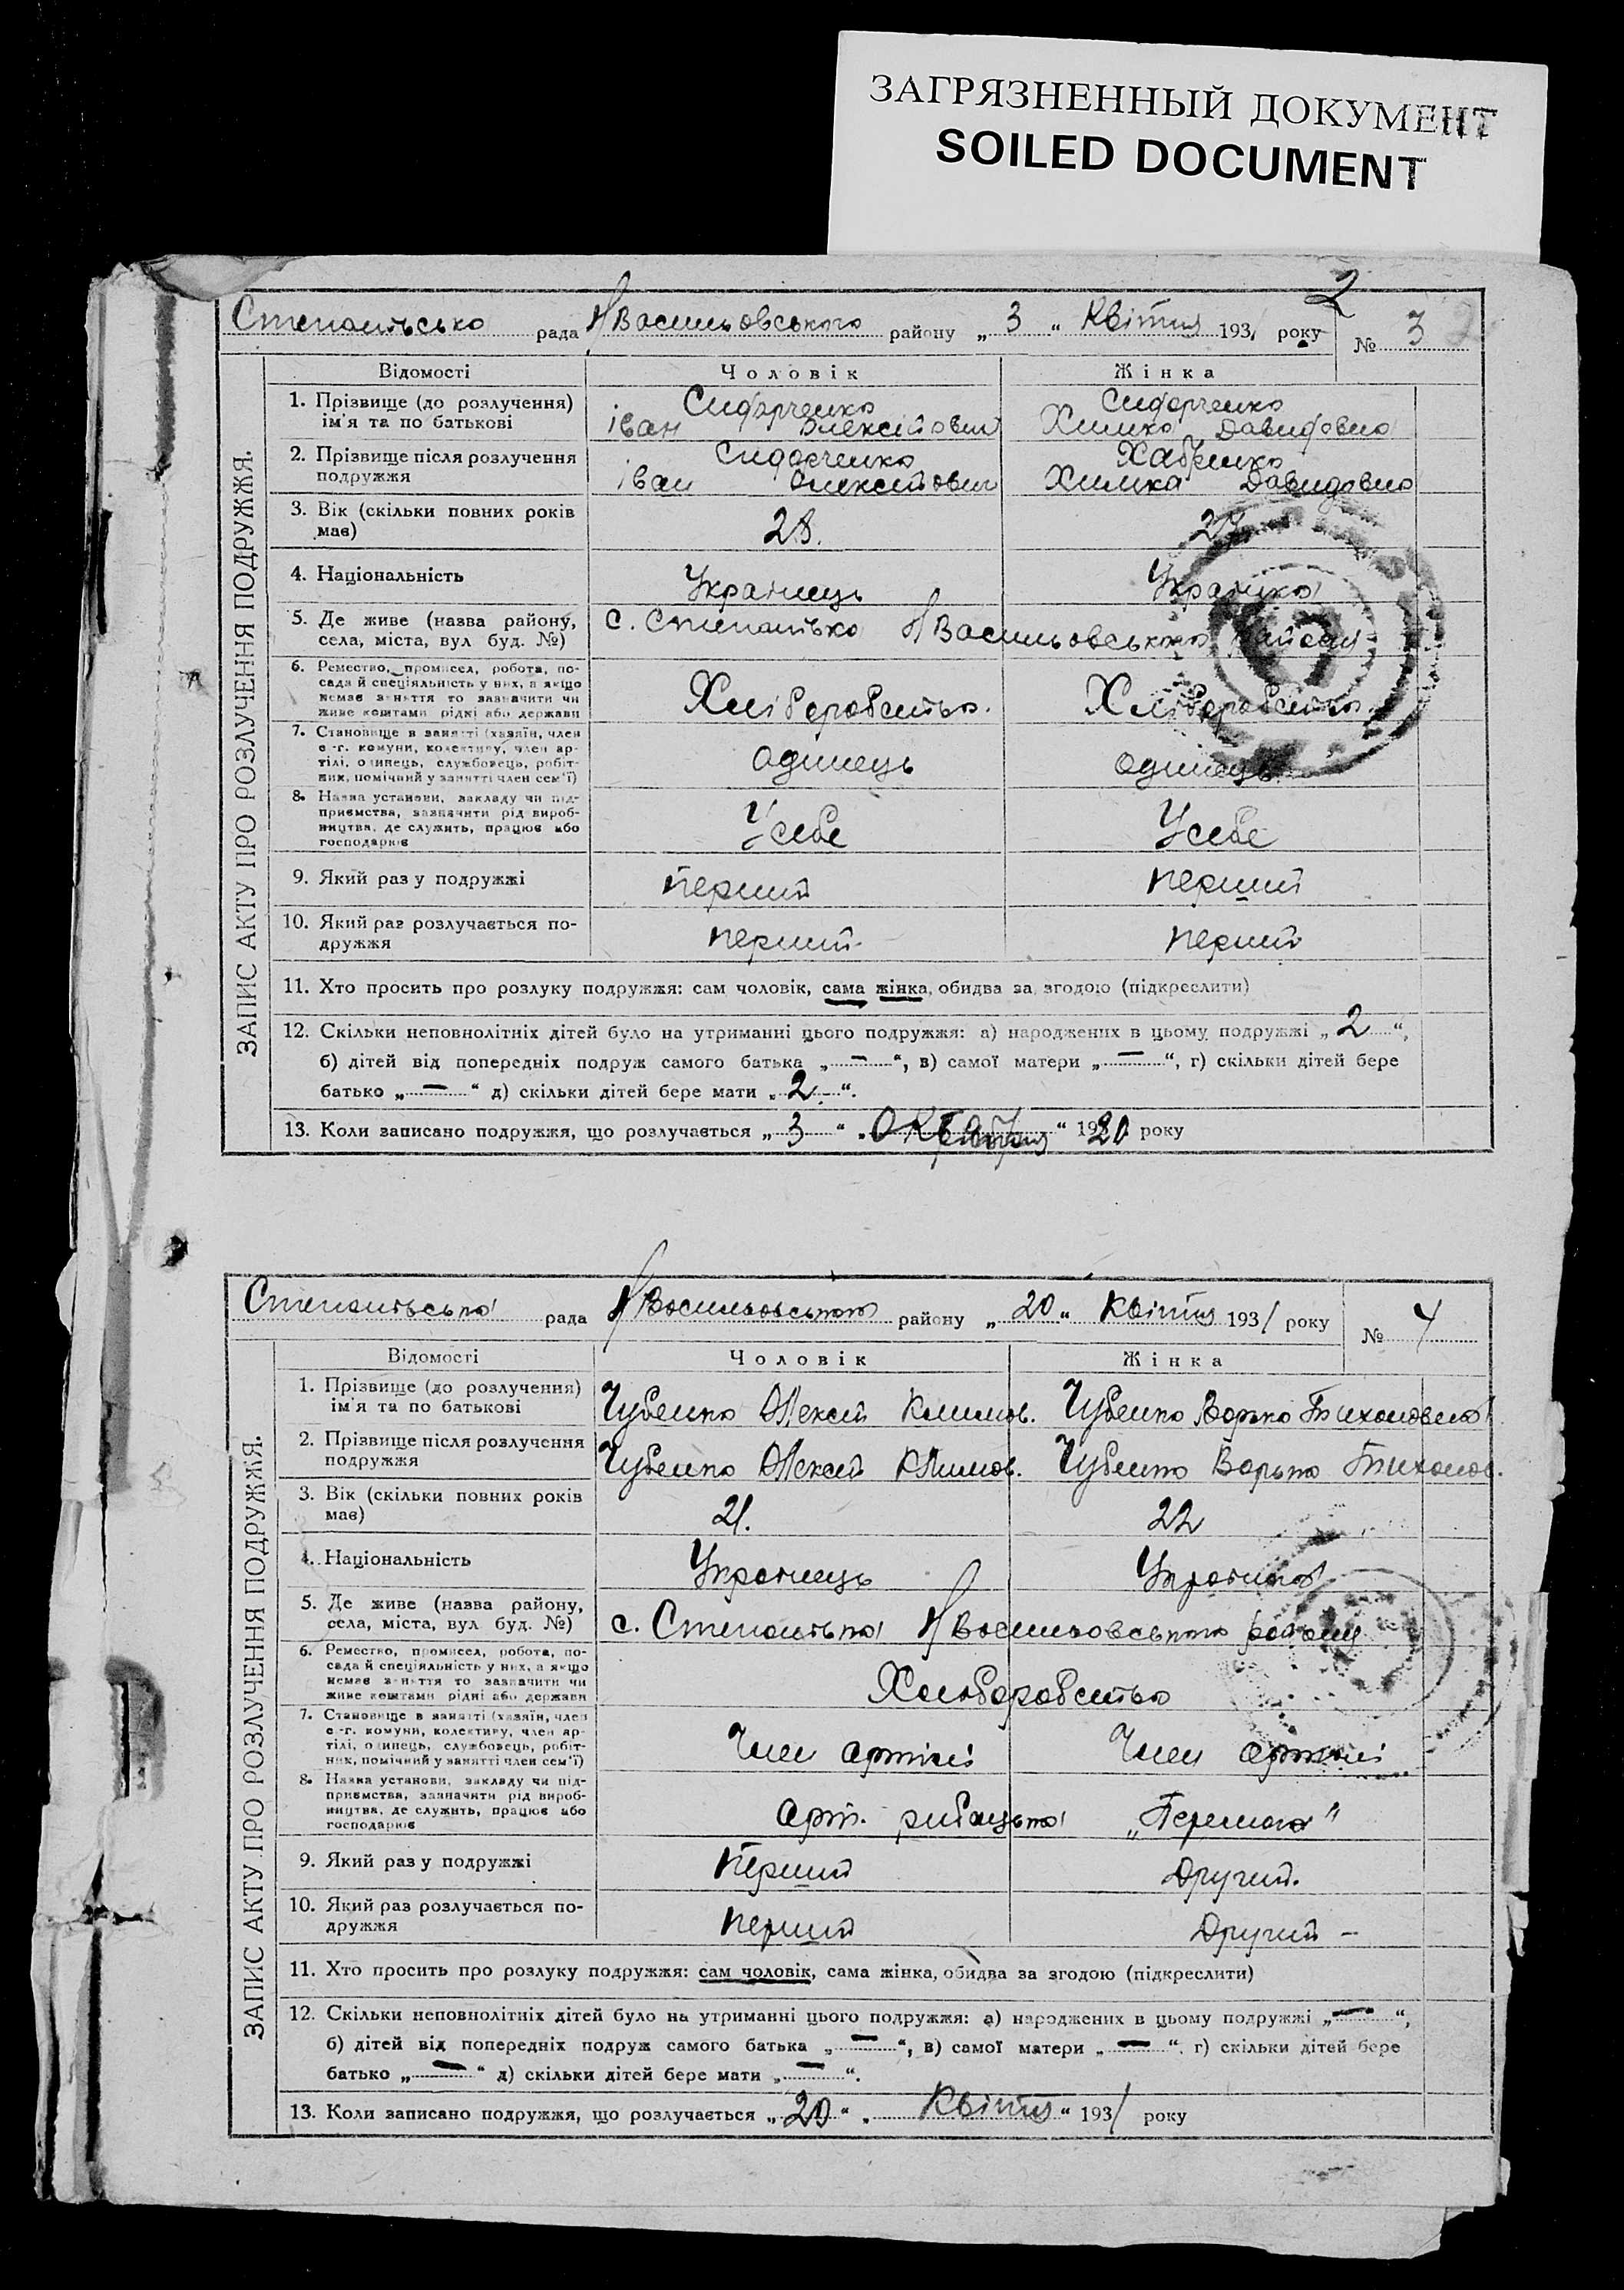 ЗАГРЯЗНЕННЫЙ ДОКУМЕНТ
SOILED DOCUMENT
2
рада району „ 3 “ Квітня 1931 року № 3
ЗАПИС АКТУ ПРО РОЗЛУЧЕННЯ ПОДРУЖЖЯ.
Відомості Чоловік Жінка
1. Прізвище (до розлучення) Сидорченко Сидорченко
ім'я та по батькові Іван Олексійович Химка Давидовна
2. Прізвище після розлучення Сидорченко
подружжя Іван Олексійович Химка Давидовна
3. Вік (скільки повних років 28.
має)
4. Національність Українець Українка
5. Де живе (назва району, с.
села, міста, вул буд. №)
6. Ремество, промисел, робота, по-
сада й спеціяльність у них, а якщо
немає заняття то зазначити чи
живе коштами рідні або держави
Хліборобство. Хліборобство.
7. Становище в занятті (хазяїн, член
с.-г. комуни, колективу, член ар-
тілі, одинець, службовець, робіт-
ник, помічний у занятті член сем'ї)
одинець одинець
8. Назва установи, закладу чи під-
приємства, зазначити рід вироб-
ництва, де служить, працює або
господарює
У себе У себе
9. Який раз у подружжі перший перший
10. Який раз розлучається по- перший перший
дружжя
11. Хто просить про розлуку подружжя: сам чоловік, сама жінка, обидва за згодою (підкреслити)
12. Скільки неповнолітніх дітей було на утриманні цього подружжя: а) народжених в цьому подружжі „ 2 “,
б) дітей від попередніх подруж самого батька „ — “, в) самої матери „ — “, г) скільки дітей бере
батько „ — “ д) скільки дітей бере мати „ 2 “.
13. Коли записано подружжя, що розлучається „ 3 “ „ “ 19 20 року
рада району „ 20 “ Квітня 1931 року № 4
ЗАПИС АКТУ ПРО РОЗЛУЧЕННЯ ПОДРУЖЖЯ.
Відомості Чоловік Жінка
1. Прізвище (до розлучення) Чубенко Олексій Климов. Чубенко Варка Тихоновна
ім'я та по батькові
2. Прізвище після розлучення Чубенко Олексій Климов. Чубенко Варька Тихонов.
подружжя
3. Вік (скільки повних років 21. 22
має)
4. Національність Українець Українка
5. Де живе (назва району, с. району
села, міста, вул буд. №)
6. Ремество, промисел, робота, по-
сада й спеціяльність у них, а якщо
немає заняття то зазначити чи
живе коштами рідні або держави
Хліборобство
7. Становище в занятті (хазяїн, член
с.-г. комуни, колективу, член ар-
тілі, одинець, службовець, робіт-
ник, помічний у занятті член сем'ї)
Член артілі Член артілі
8. Назва установи, закладу чи під-
приємства, зазначити рід вироб-
ництва, де служить, працює або
господарює
Арт. рибацька „Перемога“
9. Який раз у подружжі Перший Другий.
10. Який раз розлучається по- перший Другий –
дружжя
11. Хто просить про розлуку подружжя: сам чоловік, сама жінка, обидва за згодою (підкреслити)
12. Скільки неповнолітніх дітей було на утриманні цього подружжя: а) народжених в цьому подружжі „ — “,
б) дітей від попередніх подруж самого батька „ — “, в) самої матери „ — “. г) скільки дітей бере
батько „ — “ д) скільки дітей бере мати „ — “.
13. Коли записано подружжя, що розлучається „ 20 “ „ Квітня “ 1931 року